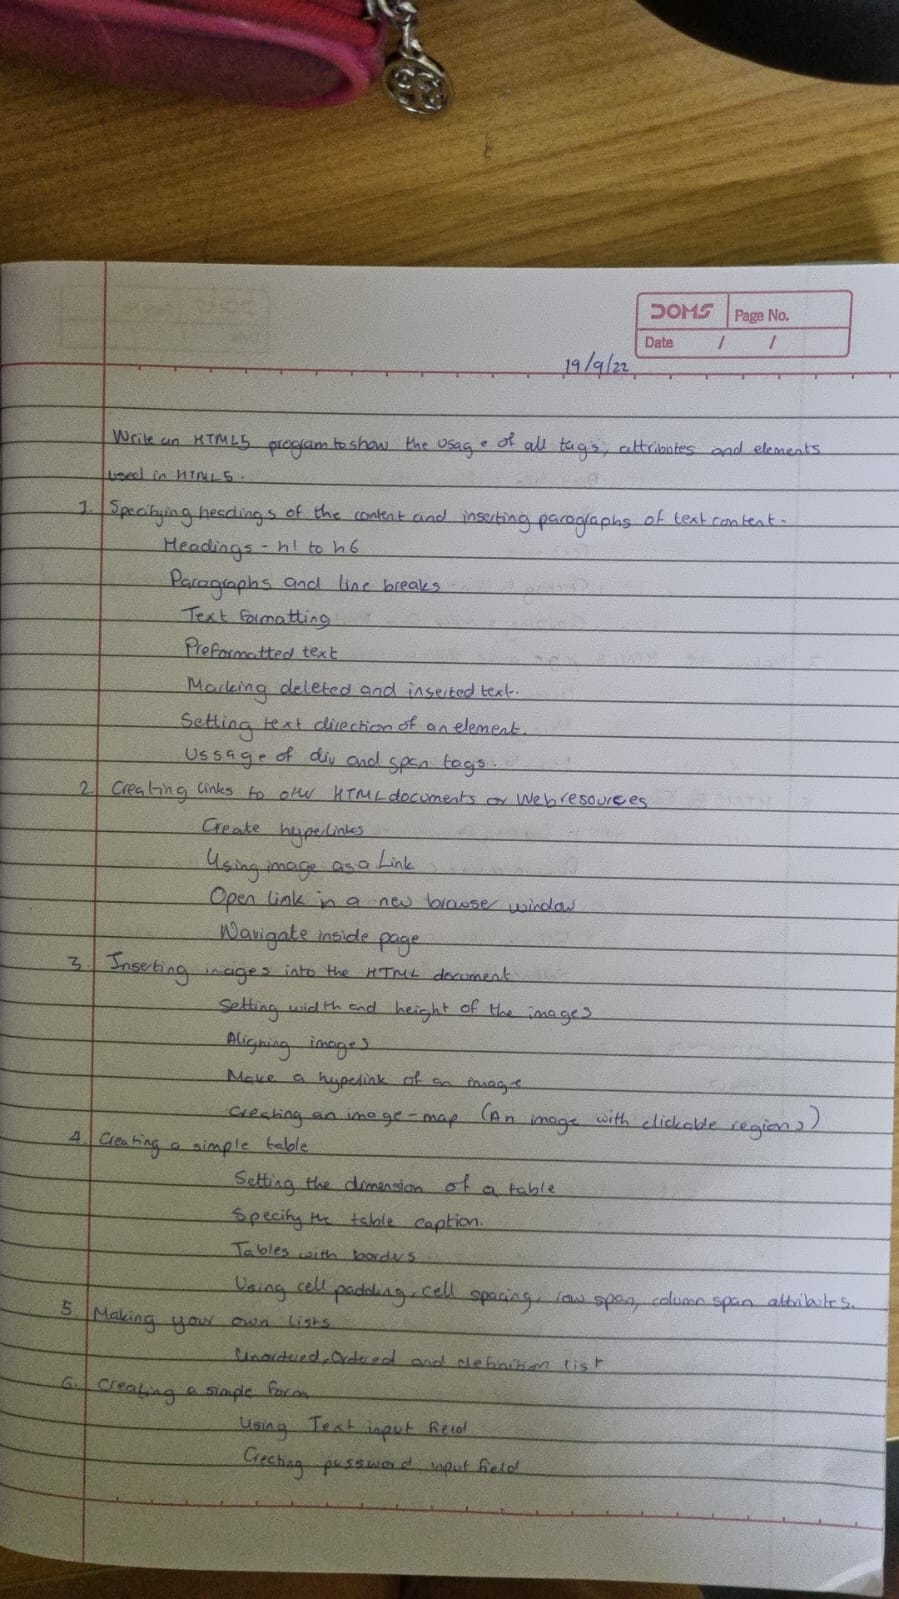 DOMS Page No.
Date / /
19/9/22
Write an HTML5 program to show the usage of all tags, attributes and elements
used in HTML5.
1. Specifying headings of the content and inserting paragraphs of text content.
Headings - h1 to h6
Paragraphs and line breaks
Text formatting
Preformatted text
Marking deleted and inserted text.
Setting text direction of an element.
Ussage of div and span tags.
2. Creating links to other HTML documents or Web resources
Create hyperlinks
Using image as a Link
Open link in a new browser window
Navigate inside page
3 Inserting images into the HTML document
Setting width and height of the images
Aligning images
Make a hyperlink of an image
Creating an image-map (An image with clickable regions)
4. Creating a simple table
Setting the dimension of a table
Specify the table caption.
Tables with borders
Using cell padding, cell spacing, row span, column span attributes.
5 Making your own lists
Unordered, Ordered and definition list
6. Creating a simple form
Using Text input field
Creating password input field